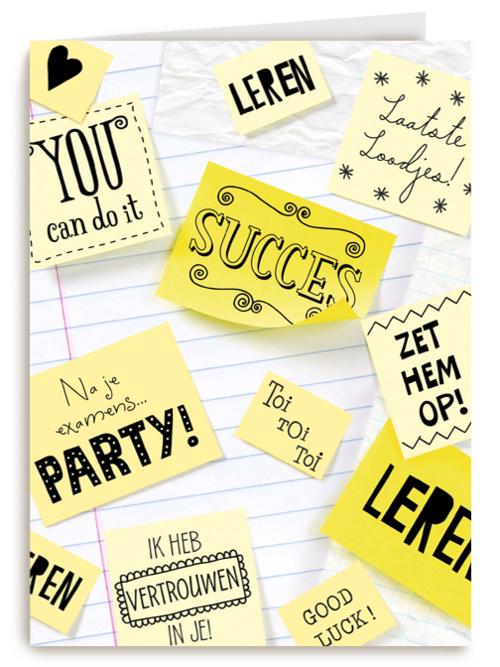 LEREN
Laatste
Loodjes!
YOU
can do it
SUCCES
ZET
HEM
OP!
Na je
examens...
PARTY!
Toi
TOI
Toi
LEREN
EREN
IK HEB
VERTROUWEN
IN JE!
GOOD
LUCK!